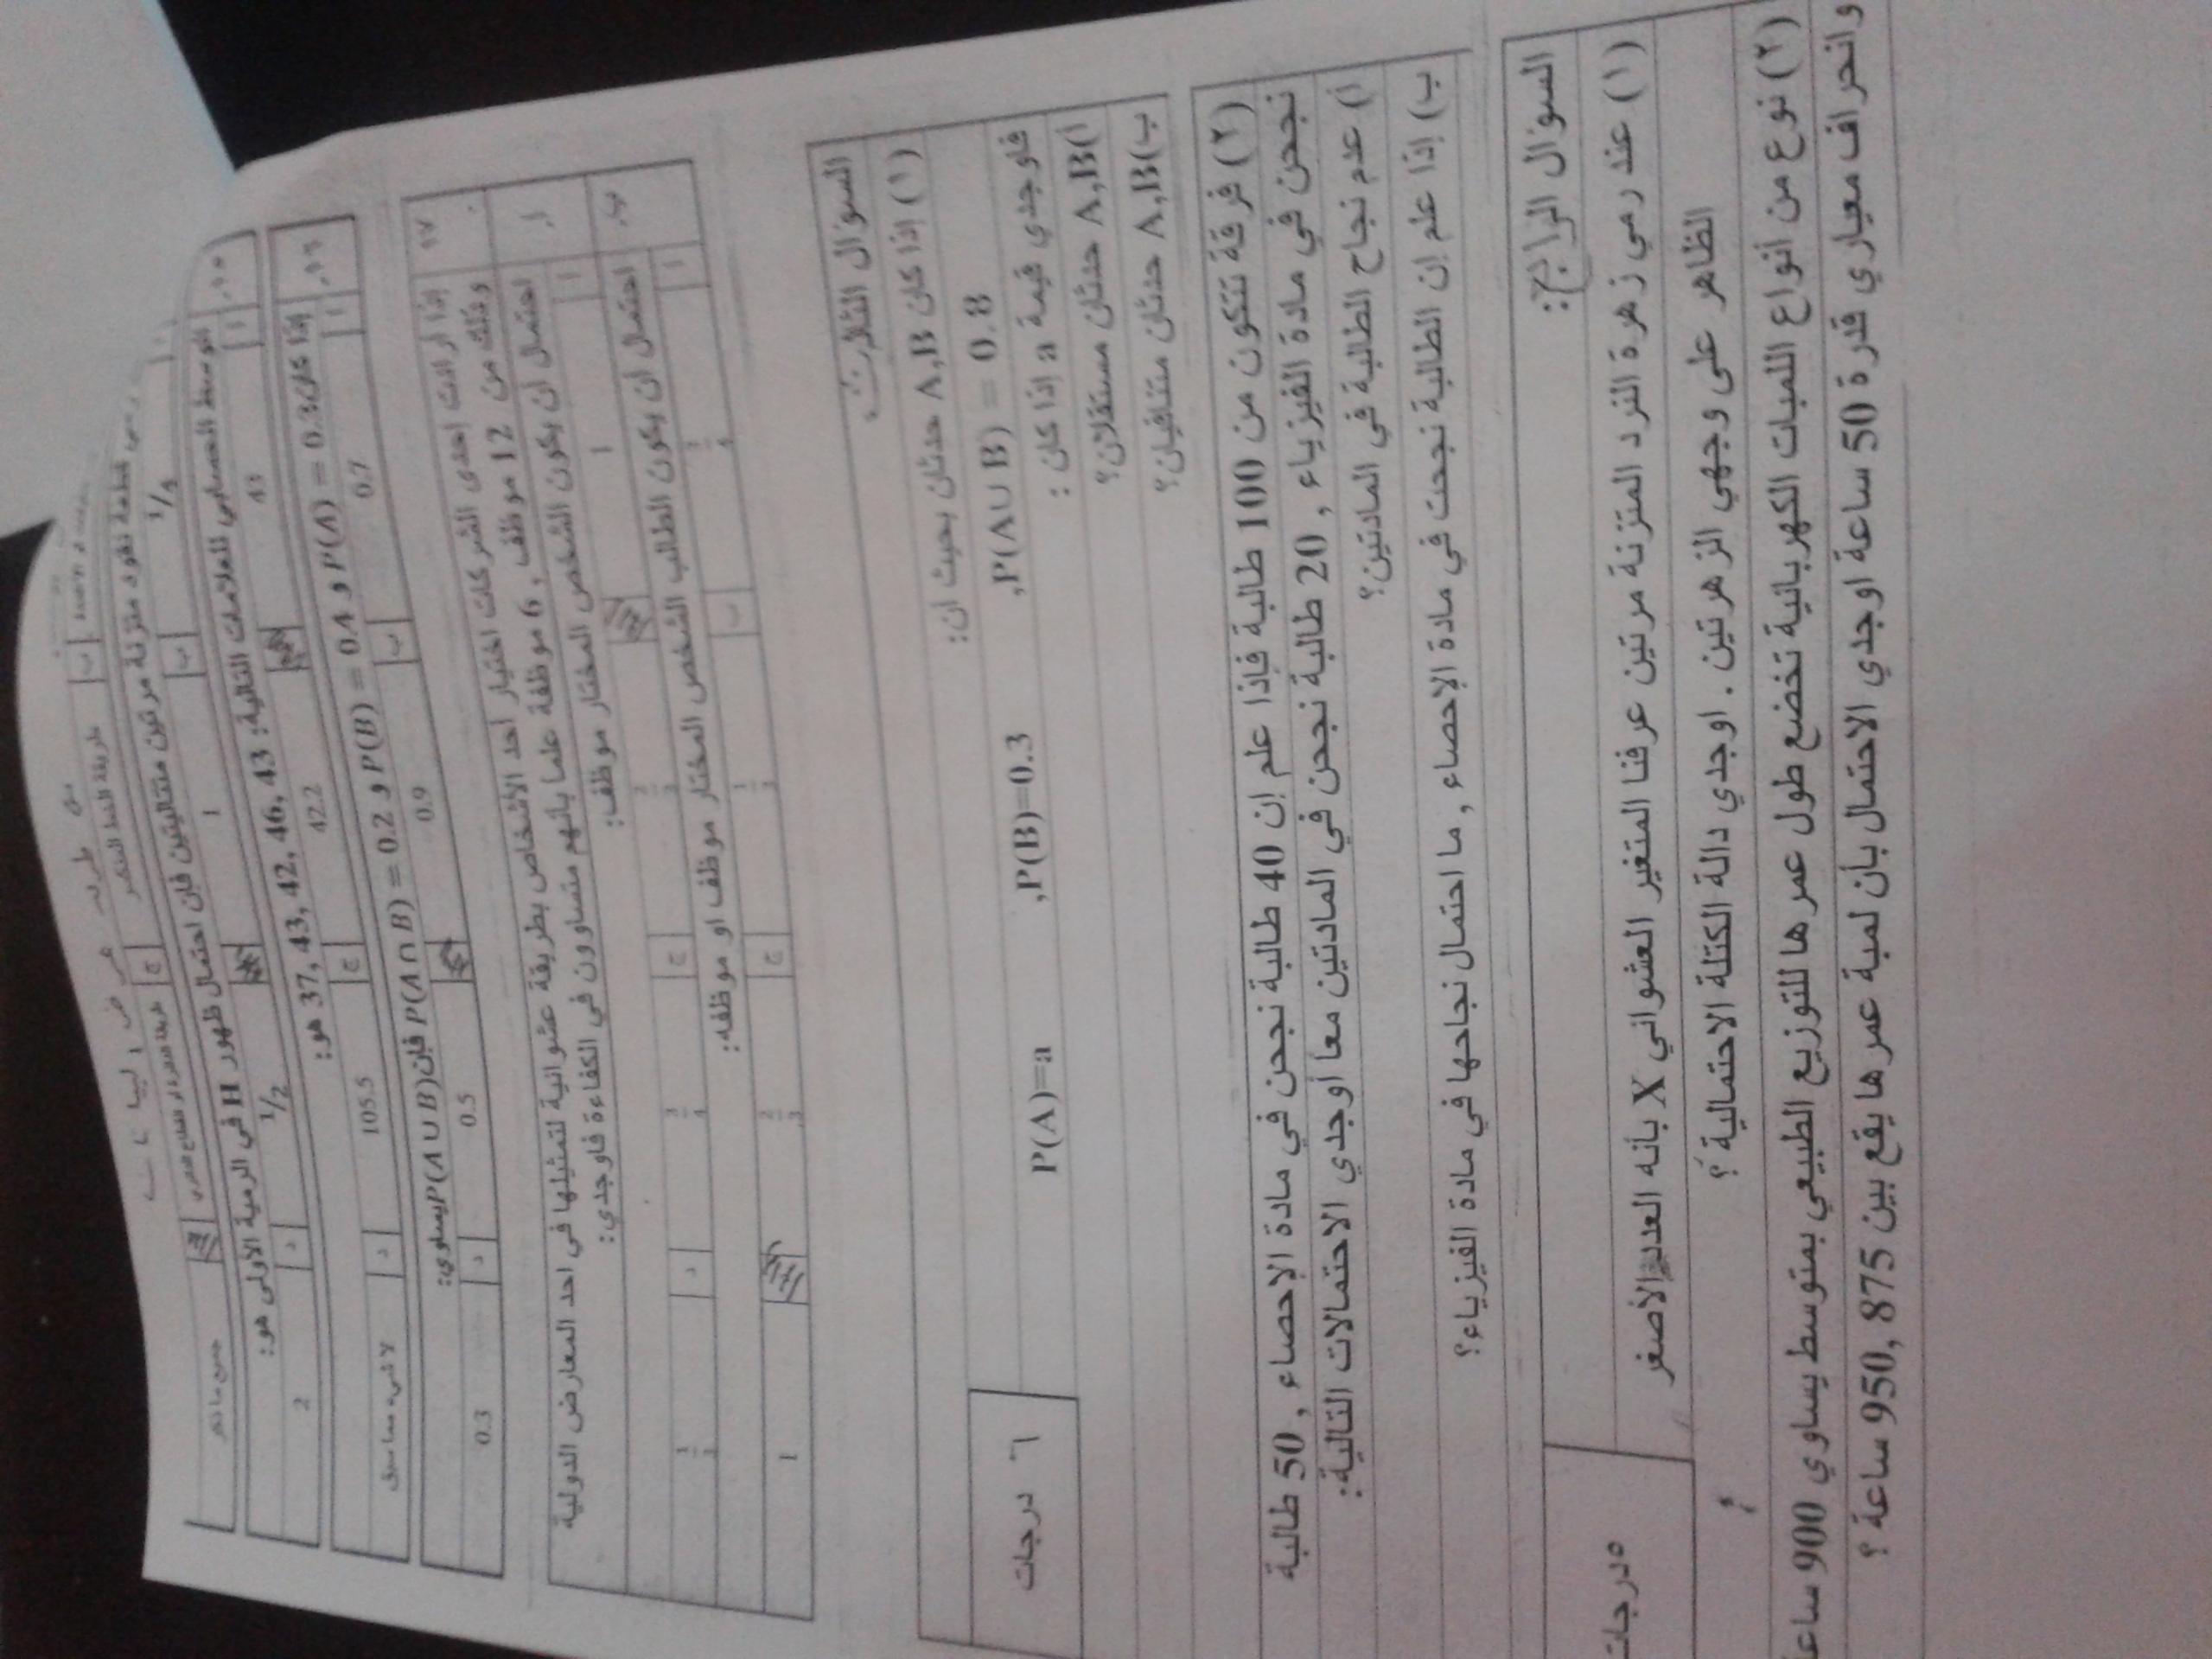 قطعة نقود متزنة مرتين متتاليتين فإن احتمال ظهور H في الرمية الأولى هو:
1/4 ب 1 1/2 د 2
١٥. الوسط الحسابي للعلامات التالية: 37, 43, 42, 46, 43 هو:
أ 43 42.2 ج 105.5 د لاشيء مما سبق
١٦. إذا كان P(A) = 0.3 و P(B) = 0.4 و P(A ∩ B) = 0.2 فإن P(A ∪ B) يساوي:
أ 0.7 ب 0.9 0.5 د 0.3
١٧ إذا أرادت إحدى الشركات اختيار أحد الأشخاص بطريقة عشوائية لتمثيلها في احد المعارض الدولية
وذلك من 12 موظف , 6 موظفة علما بأنهم متساوون في الكفاءة فاوجدي:
احتمال ان يكون الشخص المختار موظف:
أ 1 2/3 ج 3/4 د 1/2
احتمال ان يكون الطالب الشخص المختار موظف او موظفه:
أ ب ج 2/3 1
السؤال الثالث:
٦ درجات
(١) إذا كان A,B حدثان بحيث ان:
P(A)=a ,P(B)=0.3 ,P(A∪ B) = 0.8
فاوجدي قيمة a إذا كان :
أ)A,B حدثان مستقلان؟
ب)A,B حدثان متنافيان؟
(٢) فرقة تتكون من 100 طالبة فإذا علم إن 40 طالبة نجحن في مادة الإحصاء , 50 طالبة
نجحن في مادة الفيزياء , 20 طالبة نجحن في المادتين معا أوجدي الاحتمالات التالية:
أ) عدم نجاح الطالبة في المادتين؟
ب) إذا علم إن الطالبة نجحت في مادة الإحصاء , ما احتمال نجاحها في مادة الفيزياء؟
السؤال الرابع:
٥درجات
(١) عند رمي زهرة النرد المتزنة مرتين عرفنا المتغير العشوائي X بأنه العدد الأصغر
الظاهر على وجهي الزهرتين . اوجدي دالة الكتلة الاحتمالية ؟
(٢) نوع من أنواع اللمبات الكهربائية تخضع طول عمرها للتوزيع الطبيعي بمتوسط يساوي 900 ساعة
وانحراف معياري قدرة 50 ساعة اوجدي الاحتمال بأن لمبة عمرها يقع بين 875 ,950 ساعة ؟